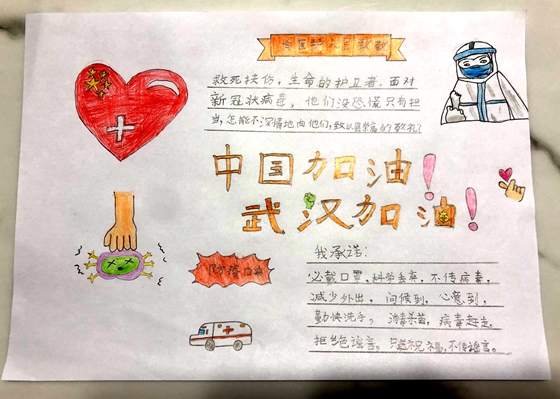 救死扶伤,生命的护卫者,面对
新冠状病毒,他们没恐慌只有担
当,怎能不深情地向他们,致以最崇高的敬礼?
中国加油!
武汉加油!
我承诺:
必戴口罩,科学丢弃,不传病毒,
减少外出,问候到,心意到,
勤快洗手,消毒杀菌,病毒赶走,
拒绝谣言,只送祝福,不传谣言。